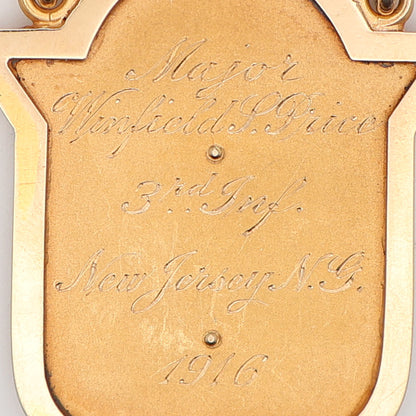 Major
Winfield S. Price
3rd Inf.
New Jersey N.G.
1916